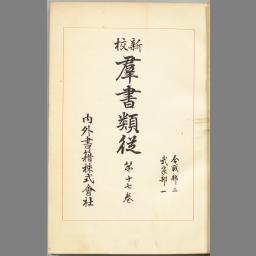 合戰部二
武家部一
新校
羣書類從
第十七卷
內外書籍株式會社